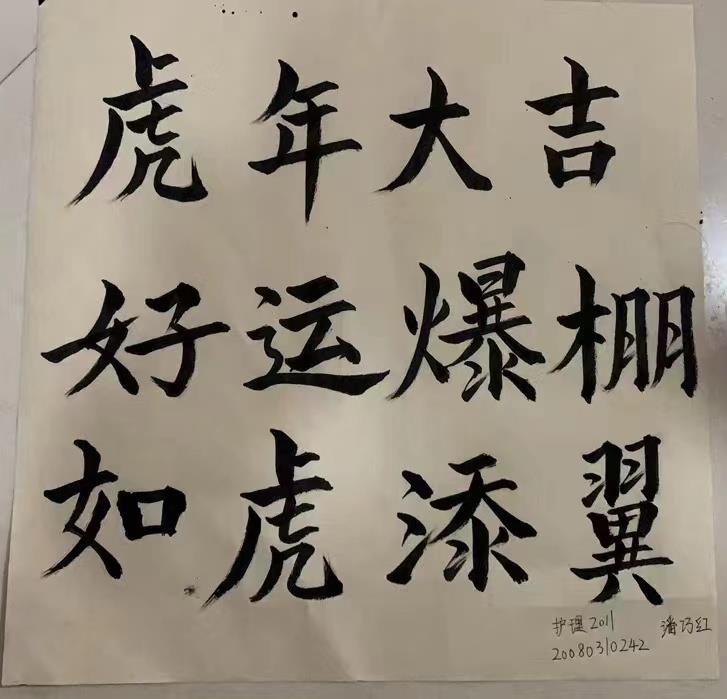 虎年大吉
好运爆棚
如虎添翼
护理2011 潘巧红
20080310242